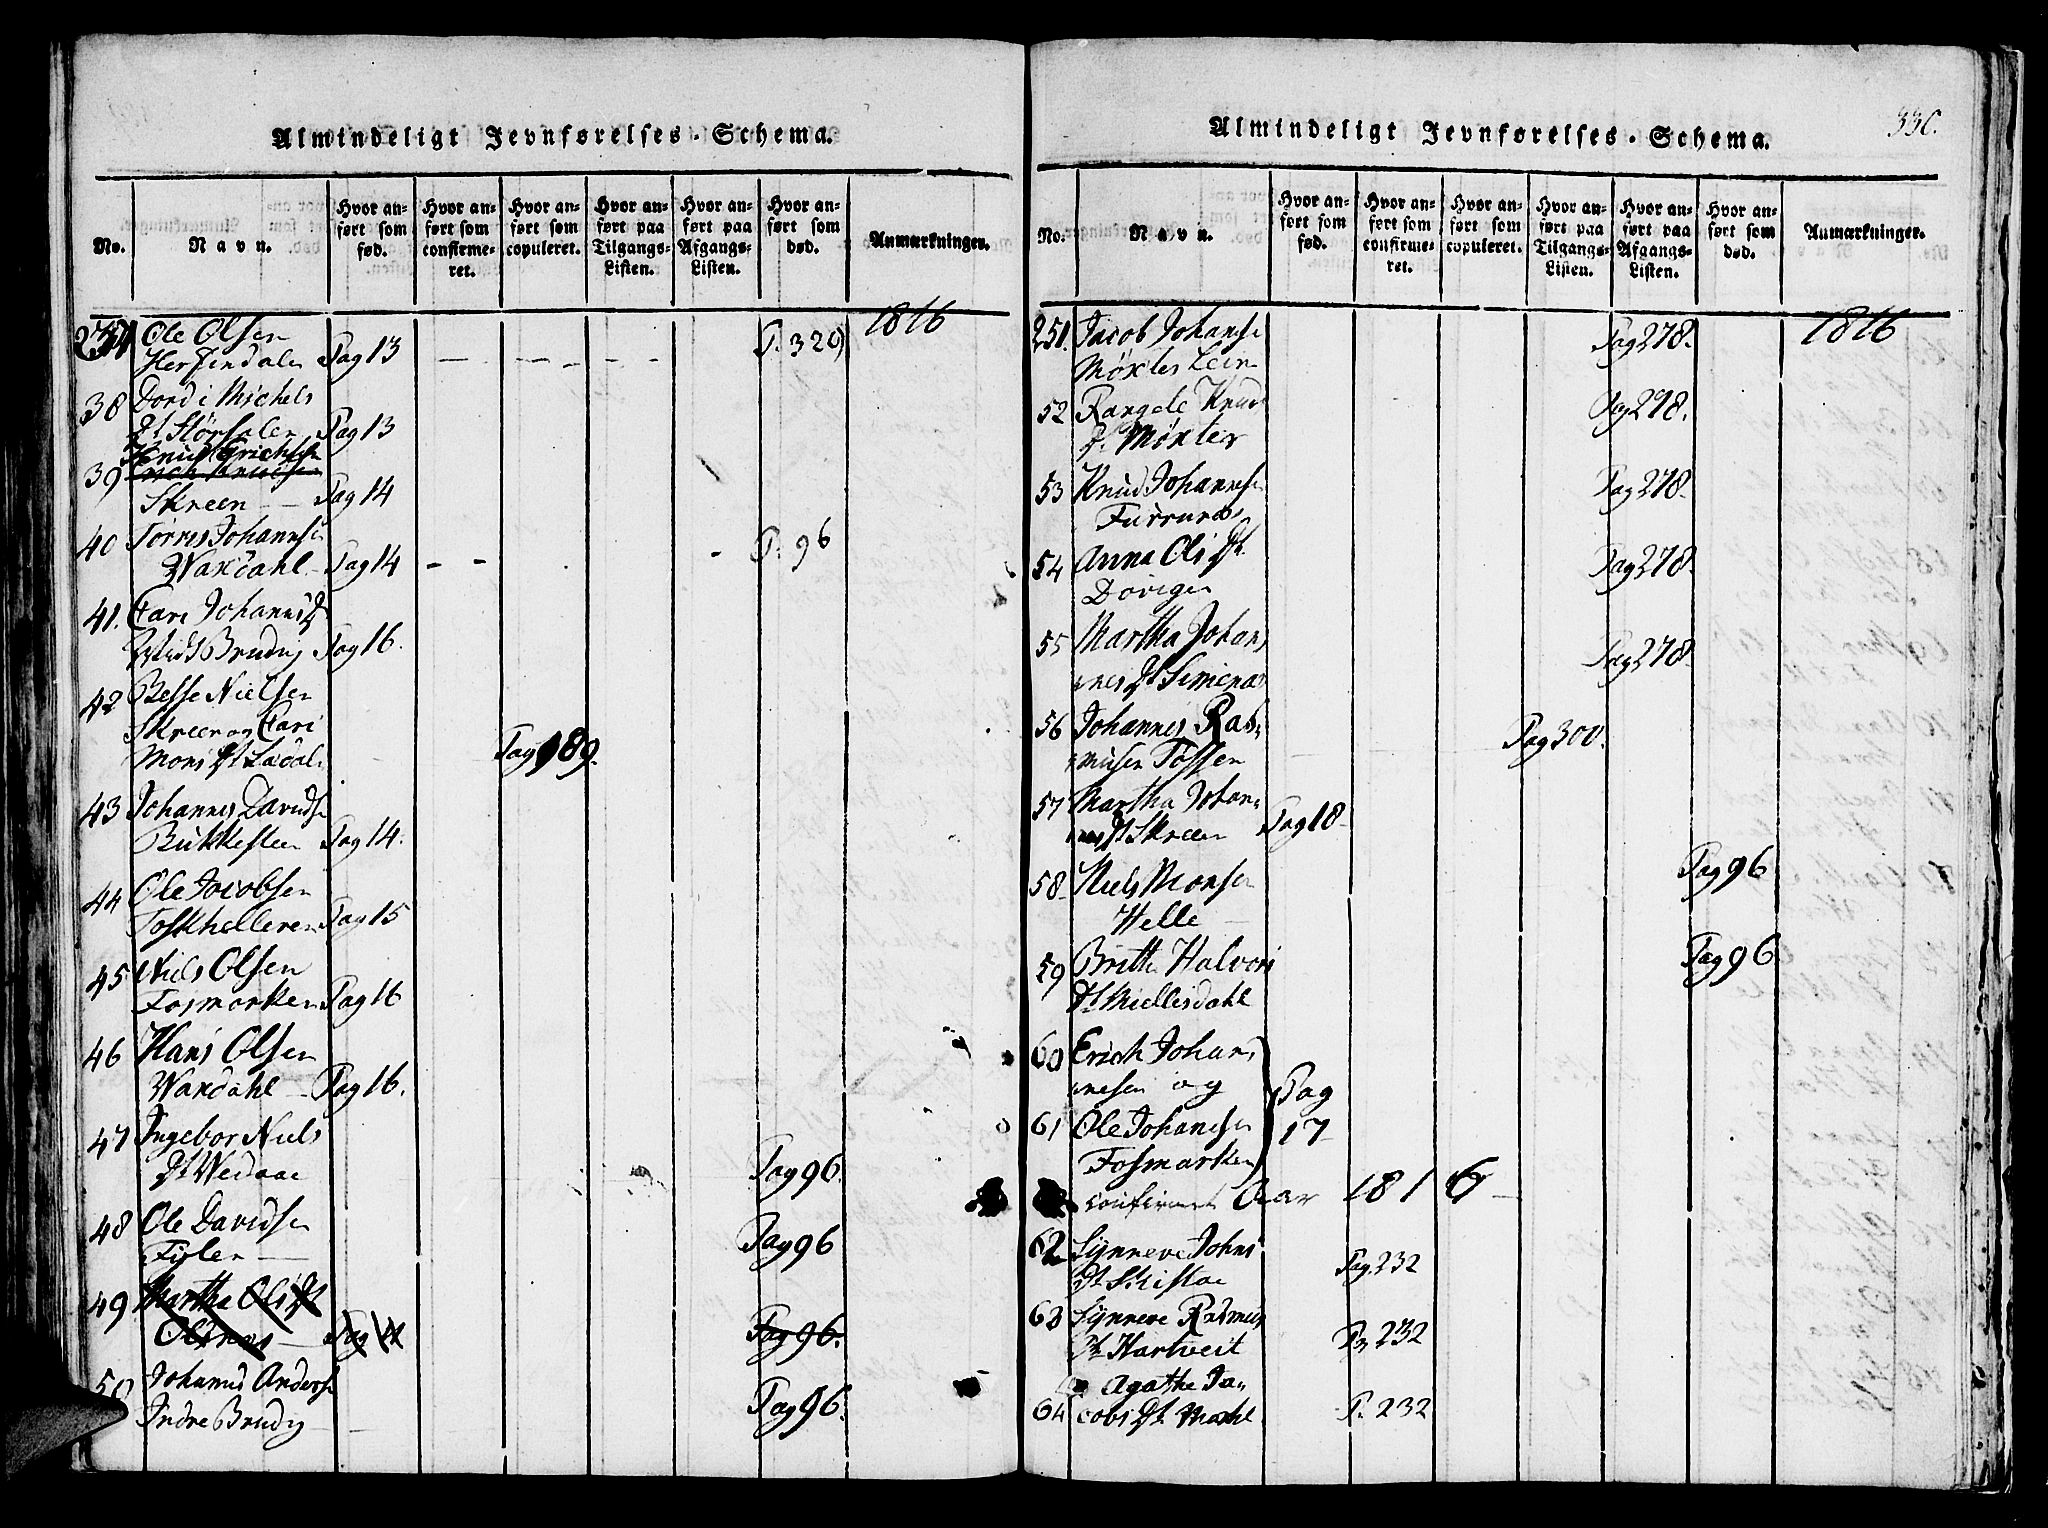 Almindeligt Jevnførelses-Schema.
No.
Navn.
Hvor anført som fød.
Hvor anført som confirmeret.
Hvor anført som copuleret.
Hvor anført paa Tilgangs-Listen.
Hvor anført paa Afgangs-Listen.
Hvor anført som død.
Anmærkninger.
1816
Ole Olsen
Herfindalen Pag 13 P. 329
38 Dordi Michels
Dt Størdalen Pag 13
Knud Erichsen
39
Skreen Pag 14
40 Torres Johannesen
Waxdahl Pag 14 P. 96
41. Cari Johannes D
Brudvig Pag 16.
42 Besse Nielsen
Skreen og Cari
Mons Dt Pag 189.
43 Johannes Davidsen
Bukkesteen Pag 14.
44 Ole Jacobsen
Toskhelleren Pag 15
45 Niels Olsen
Fosmarken Pag 16
46 Hans Olsen
Waxdahl Pag 16.
47 Ingebor Niels
Dt Weidaae Pag 96.
48 Ole Davidsen
Pag 96
49 Martha Ols Dt
Olsnæs Pag 96.
50 Johannes Anders
Indre Brudvig Pag 96.
330.
Almindeligt Jevnførelses-Schema.
No.
Navn.
Hvor anført som fød.
Hvor anført som confirmeret.
Hvor anført som copuleret.
Hvor anført paa Tilgangs-Listen.
Hvor anført paa Afgangs-Listen.
Hvor anført som død.
Anmærkninger.
1816
251. Jacob Johannesen Pag 278.
Møxter
52 Rangele Knuds Pag 278.
Dt. Møxter
53 Knud Johannesen Pag 278.
Furrunæs
54 Anna Ols Dt. Pag 278.
55 Martha Johan
nes Dt Simenæs Pag 278
56 Johannes Ras
musen Tossen Pag 300.
57 Martha Johan
nes Dt Skreen Pag 18
58 Niels Monsen Pag 96
Helle
59 Britha Halvors Pag 96
Dt Miellesdahl
60 Erich Johan
nesen og Pag
61 Ole Johannesen 17
Fosmarken
confirmeret Aar 1816
62 Synneve Johns
Dt Pag. 232
63 Synneve Rasmus
Dt Hartveit P. 232
Agathe Ja
64 cobs Dt P. 232